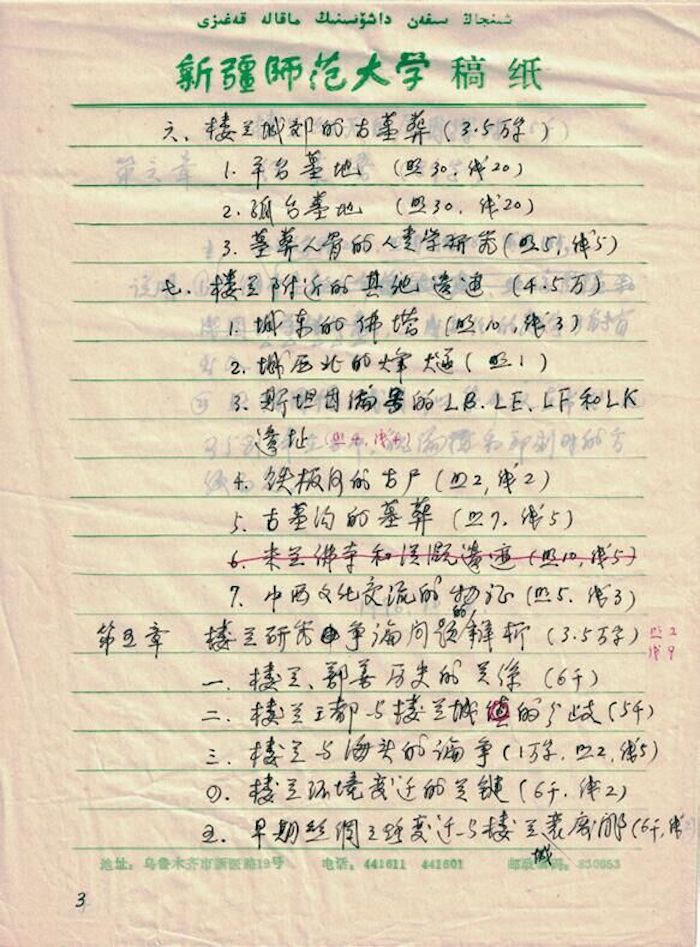 شىنجاڭ سىفەن داشۆسىنىڭ ماقالە قەغىزى
新疆师范大学 稿纸
六、楼兰城郊的古墓葬(3.5万字)
1. 平台墓地 (照30、线20)
2. 孤台墓地 (照30、线20)
3. 墓葬人骨的人类学研究(照5、线5)
七、楼兰附近的其他遗迹(4.5万)
1. 城东的佛塔(照10、线3)
2. 城西北的烽燧(照1)
3. 斯坦因编号的LB、LE、LF和LK
遗址
4. 铁板河的古尸(照2、线2)
5. 古墓沟的墓葬(照7、线5)
6. 米兰佛寺和汉文遗迹(照10、线5)
7. 中西文化交流的物证(照5、线3)
第五章 楼兰研究中争论问题的辩析(3.5万字)照2
线9
一、楼兰、鄯善历史的关系(6千)
二、楼兰王都与楼兰城的分歧(5千)
三、楼兰与海头的论争(1万字、照2、线5)
四、楼兰环境变迁的关键(6千、线2)
五、早期丝绸之路变迁与楼兰城衰废(6千、线
地址:乌鲁木齐市新医路19号 电话:441611 441601 邮政编码:830053
3